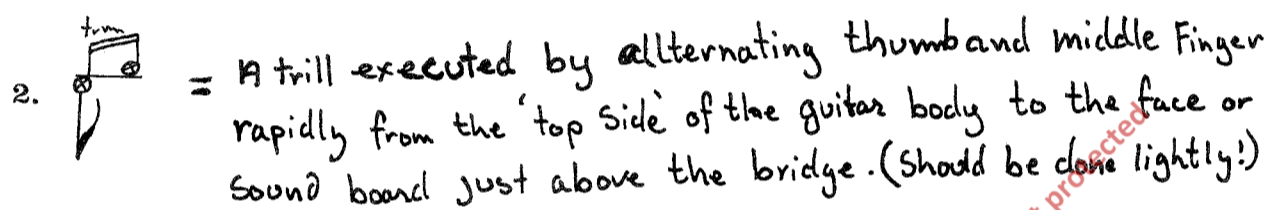 trmm
2. = A trill executed by allternating thumb and middle Finger
rapidly from the 'top side' of the guitar body to the face or
sound board just above the bridge. (Should be done lightly!)
protected